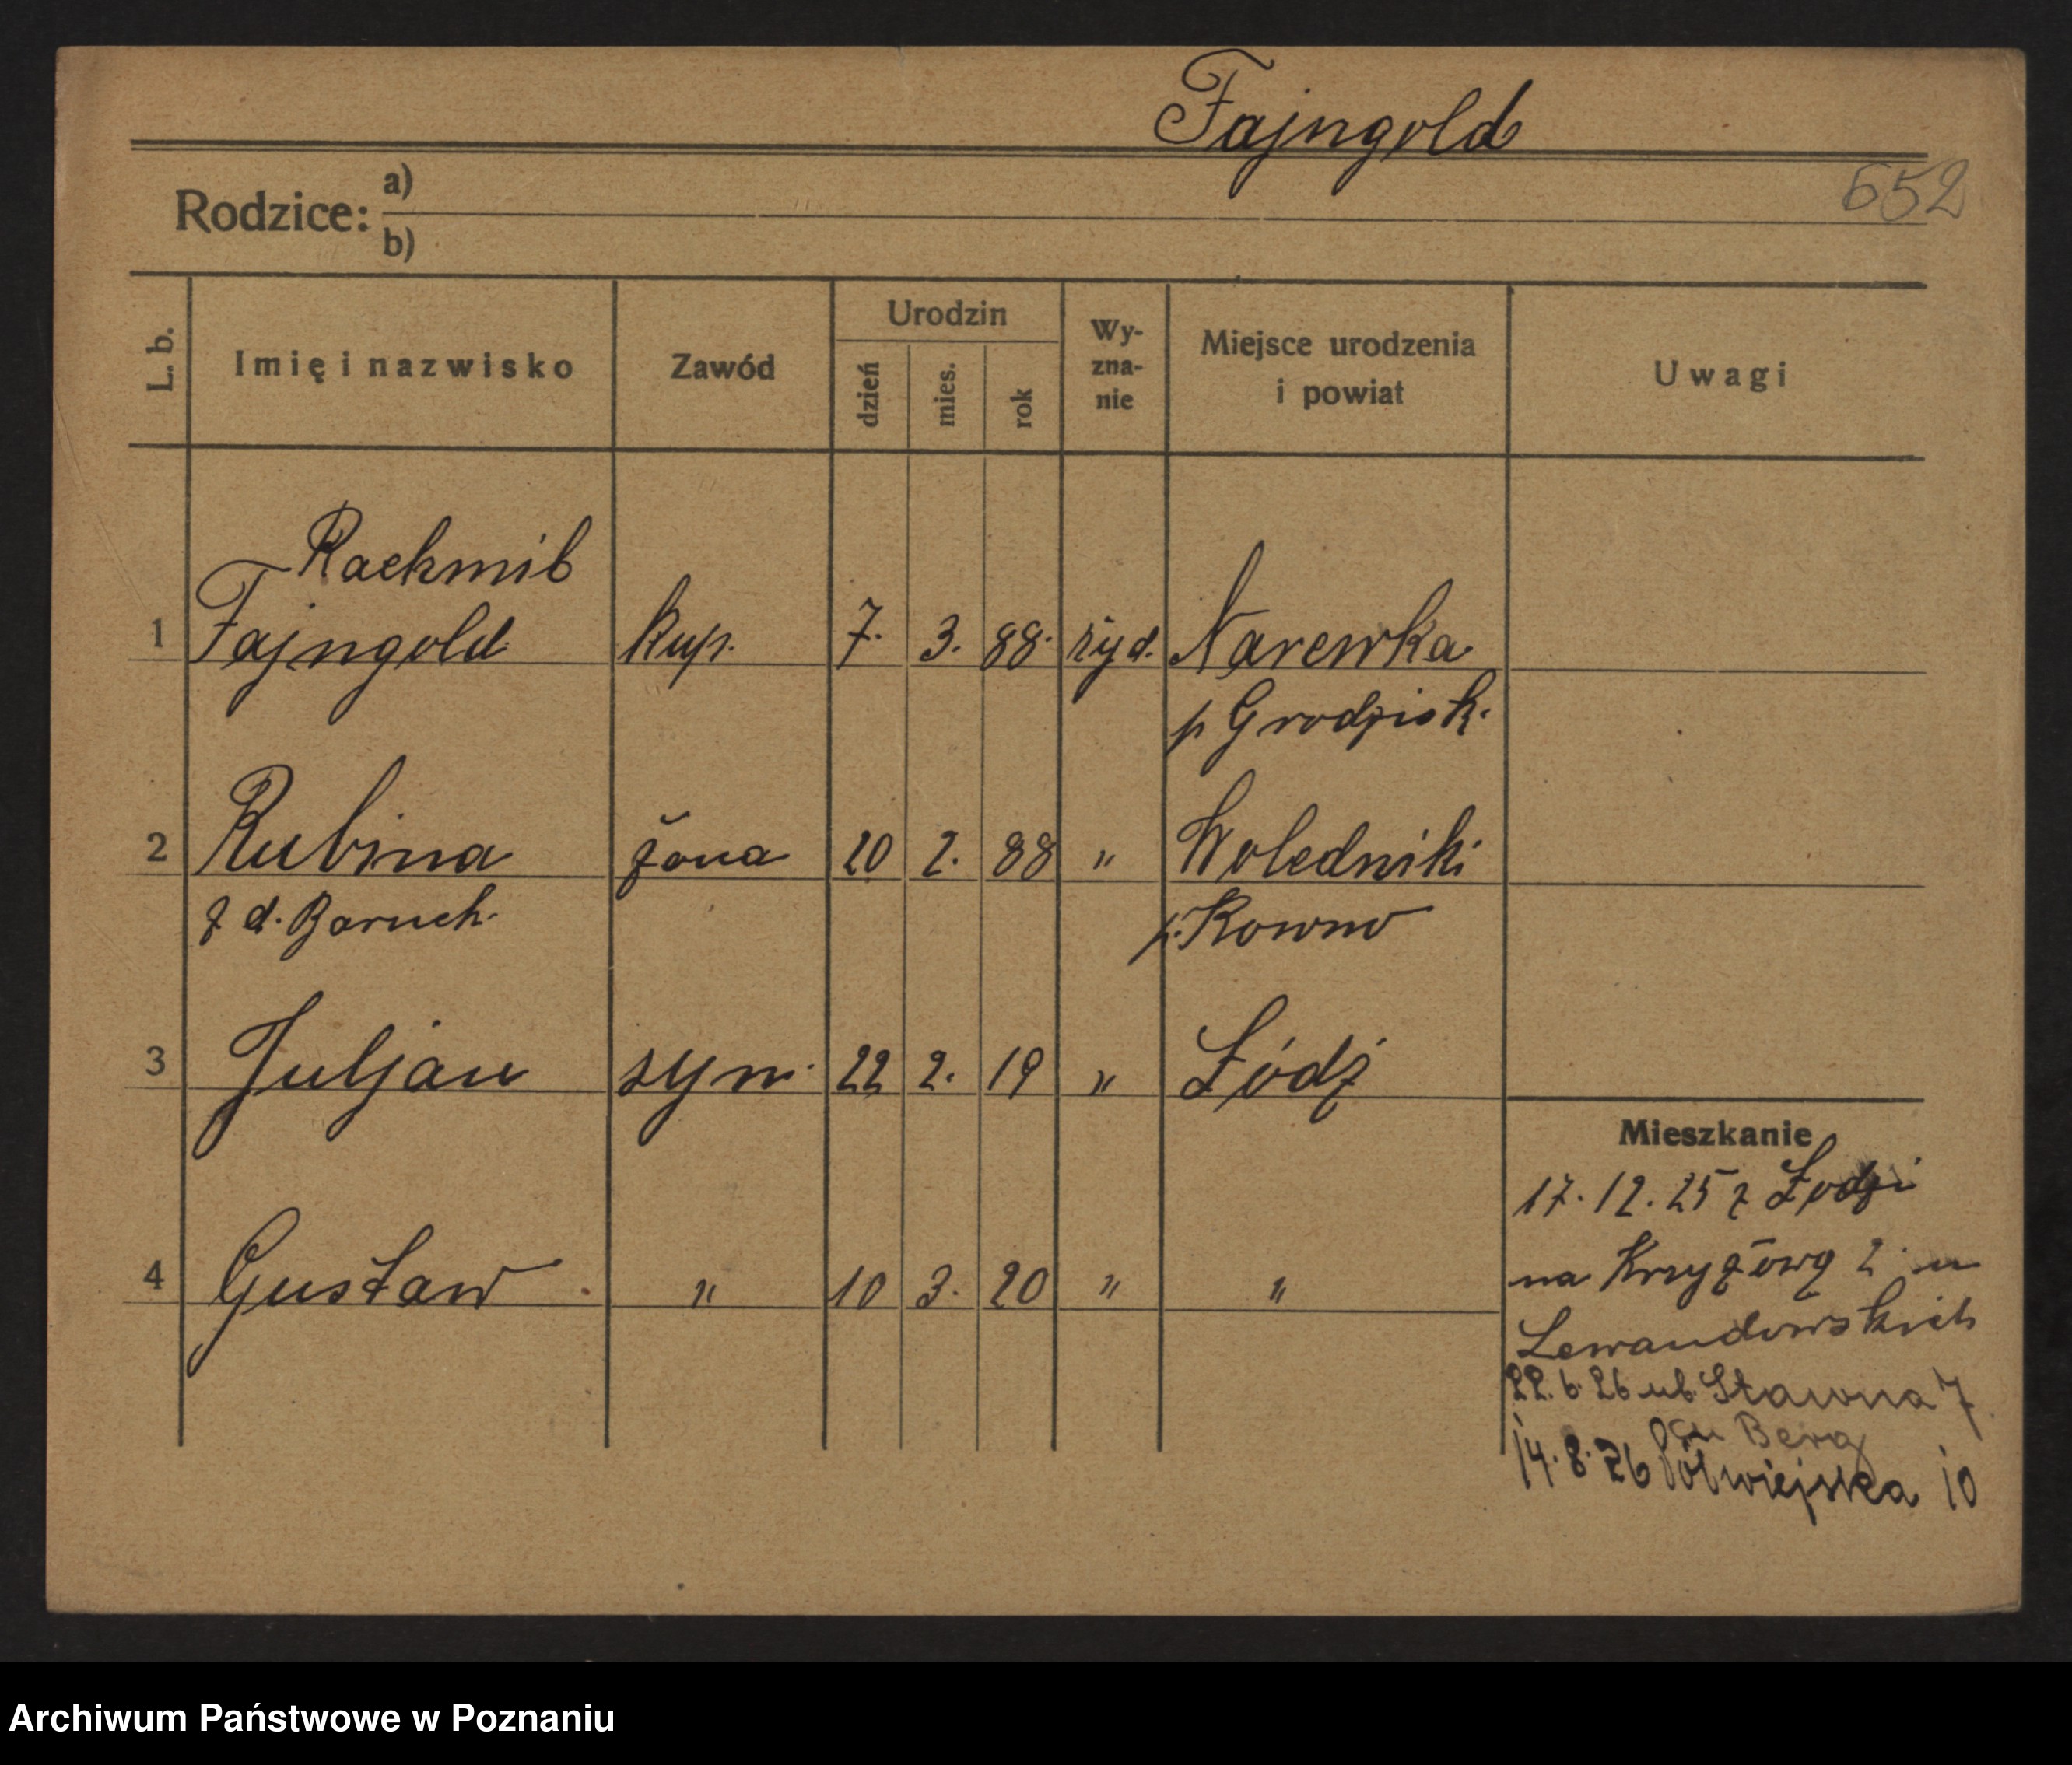 Fajngold
652
Rodzice: a)
b)
L. b. Imię i nazwisko Zawód Urodzin dzień mies. rok Wy-zna-nie Miejsce urodzenia i powiat Uwagi
Rachmil
1 Fajngold kup. 7. 3. 88. żyd. Narewka
p Grodzisk.
2 Rubina żona 20 2. 88 " Woledniki
z d. Baruch. p. Kowno
3 Juljan syn 22 2. 19 " Łódź
4 Gustaw " 10 3. 20 " "
Mieszkanie
17. 12. 25 z Łodzi
na Krzyżową 2 u
Lewandowskich
22. 6. 26 ul. Stawna 7
cu Berg
14. 8. 26 Półwiejska 10
Archiwum Państwowe w Poznaniu